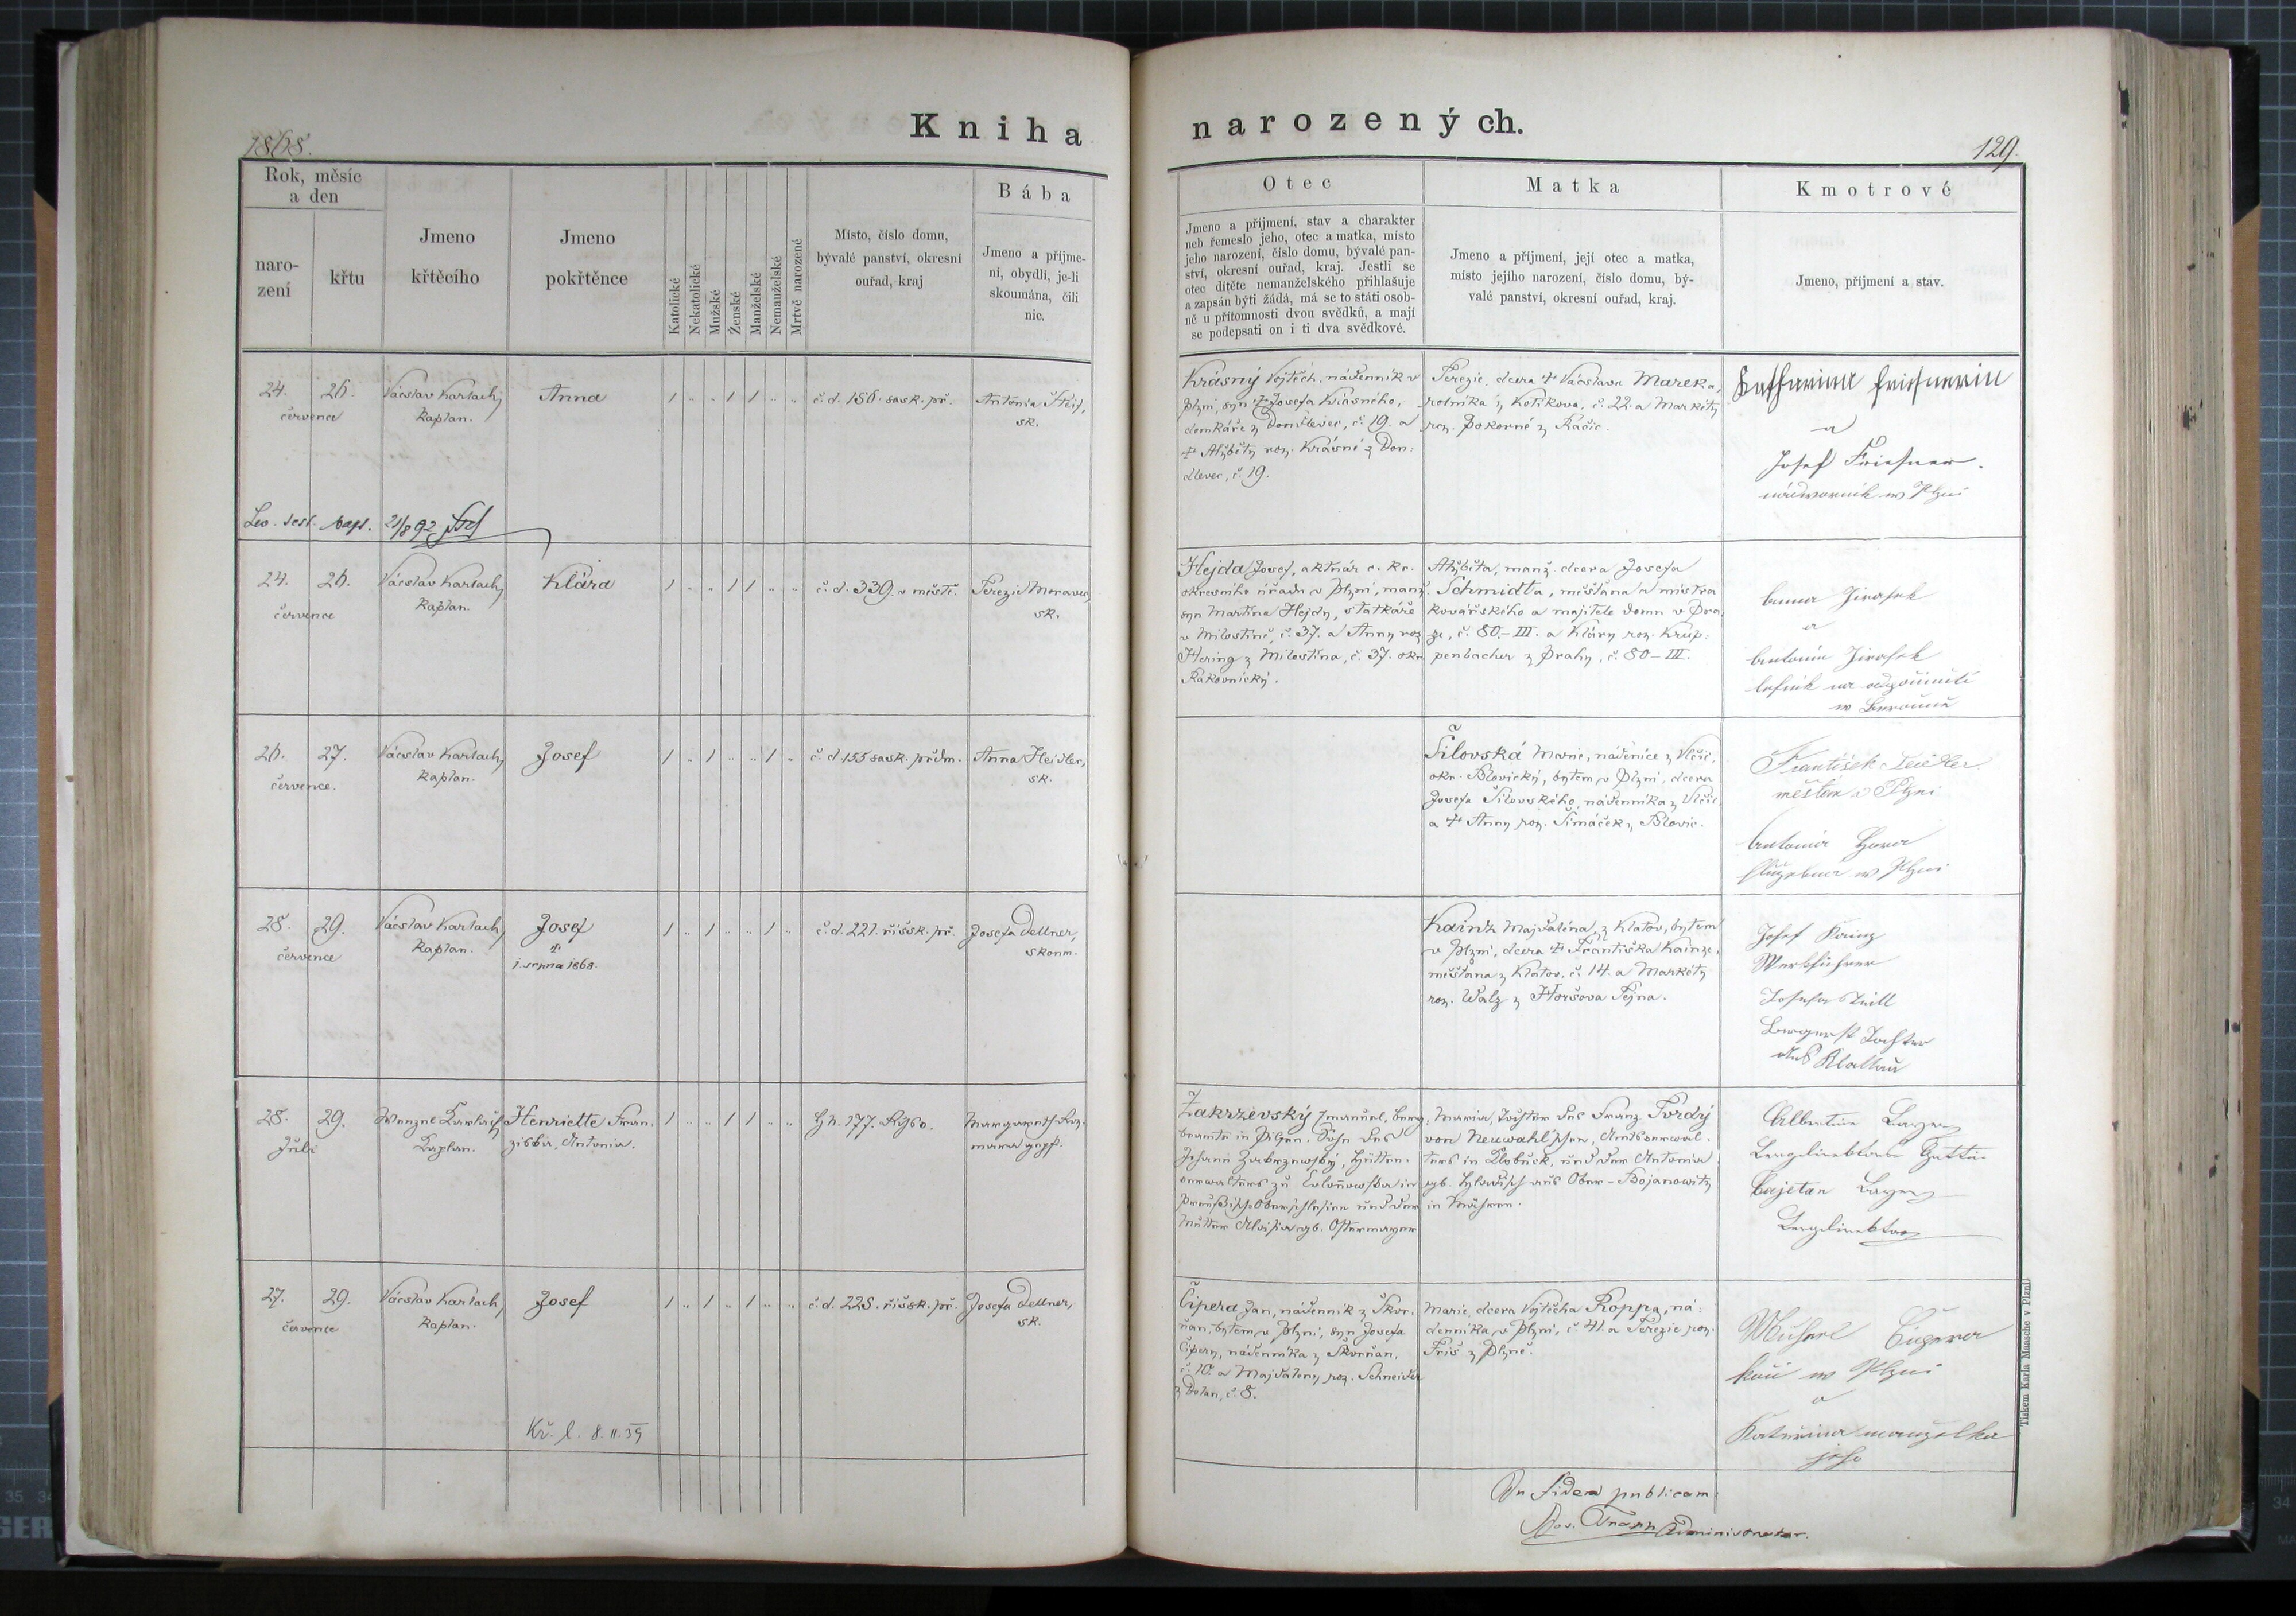 Kniha narozených.
1868.
129.
Rok, měsíc
a den
naro-
zení
křtu
Jmeno
křtěcího
Jmeno
pokřtěnce
Katolické
Nekatolické
Mužské
Ženské
Manželské
Nemanželské
Mrtvě narozené
Místo, číslo domu,
bývalé panství, okresní
ouřad, kraj
Bába
Jmeno a příjme-
ní, obydlí, je-li
skoumána, čili
nic.
Otec
Jmeno a příjmení, stav a charakter
neb řemeslo jeho, otec a matka, místo
jeho narození, číslo domu, bývalé pan-
ství, okresní ouřad, kraj. Jestli se
otec dítěte nemanželského přihlašuje
a zapsán býti žádá, má se to státi osob-
ně u přítomnosti dvou svědků, a mají
se podepsati on i ti dva svědkové.
Matka
Jmeno a příjmení, její otec a matka,
místo jejího narození, číslo domu, bý-
valé panství, okresní ouřad, kraj.
Kmotrové
Jmeno, příjmení a stav.
24. 26.
července
Václav Karlach,
kaplan.
Anna
č. d. 156. sask. př.
Antonia
sk.
Krásný Vojtěch, nádenník v
Plzni, syn † Josefa Krásného,
domkáře z Dondlevec, č. 19. a
† Alžběty roz. Krásné z Don-
dlevec, č. 19.
Terezie, dcera † Václava Mareka,
rolníka z Kotíkova, č. 22. a Markéty
roz. Pokorné z Račic.
Katharina Friesnerin
a
Josef Friesner.
nádvorník w Plzni
Lev. test. bapt. 21/8 92
24. 26.
července
Václav Karlach,
kaplan.
Klára
č. d. 339. v městě.
Terezie Moravec,
sk.
Hejda Josef, aktuár c. kr.
okresního úřadu v Plzni, manž.
syn Martina Hejdy, statkáře
v Milostíně, č. 37. a Anny roz.
Hering z Milostína, č. 37. okr.
Rakovnický.
Alžběta, manž. dcera Josefa
Schmidta, měšťana a mistra
kovářského a majitele domu v Pra-
ze, č. 80-III. a Kláry roz. Krup-
penbacher z Prahy, č. 80-III.
Anna Jirasek
a
Antonín Jirasek
w Berouně
26. 27.
července.
Václav Karlach,
kaplan.
Josef
č. d. 155 sask. předm.
Anna Heidler,
sk.
Šilovská Marie, nádenice z Vlčic,
okr. Blovický, bytem v Plzni, dcera
Josefa Šilovského, nádenníka z Vlčic
a † Anny roz. Šimáček z Blovic.
František Heidler
měštín v Plzni
Antonia Hora
služebna w Plzni
28. 29.
července
Václav Karlach,
kaplan.
Josef
†
1. srpna 1868.
č. d. 221. říšsk. př.
Josefa Dellner,
skoum.
Kainz Majdaléna, z Klatov, bytem
v Plzni, dcera † Františka Kainze,
měšťana z Klatov, č. 14. a Markéty
roz. Walz z Horšova Týna.
Josef Kainz
Werkführer
Josefa
Bürgers Tochter
aus Klattau
28. 29.
Juli
Wenzel Karlach
Kaplan.
Henriette Fran-
ziska, Antonia.
H. N. 177. Rchsv.
Margareth
gepf.
Zakrzevský Emanuel, Berg-
beamte in Pilsen, Sohn des
Johann Zakrzewský, Hütten-
verwalters zu in
Preußisch-Oberschlesien und der
Mutter Aloisia gb. Ostermayer
Maria, Tochter des Franz Tvrdý
von Neuwahl, Amtsverwal-
ters in Klobuck, und der Antonia
gb. aus Ober-Bojanowitz
in Mähren.
Albertine Bayer
Bergdirektors Gattin
Cajetan Bayer
Bergdirektor
27. 29.
července
Václav Karlach,
kaplan.
Josef
č. d. 225. říšsk. př.
Josefa Dellner,
sk.
Čipera Jan, nádenník z Škvr-
ňan, bytem v Plzni, syn Josefa
Čipery, nádenníka z Škvrňan,
č. 10. a Majdaleny roz. Schneider
z Dolan, č. 8.
Marie, dcera Vojtěcha Roppa, ná-
denníka v Plzni, č. 41. a Terezie roz.
Friš z Plzně.
w Plzni
a
Kateřina manželka
jeho
Kř. l. 8. II. 39
In fidem publicam:
Administrator.
Tiskem Karla Maasche v Plzni